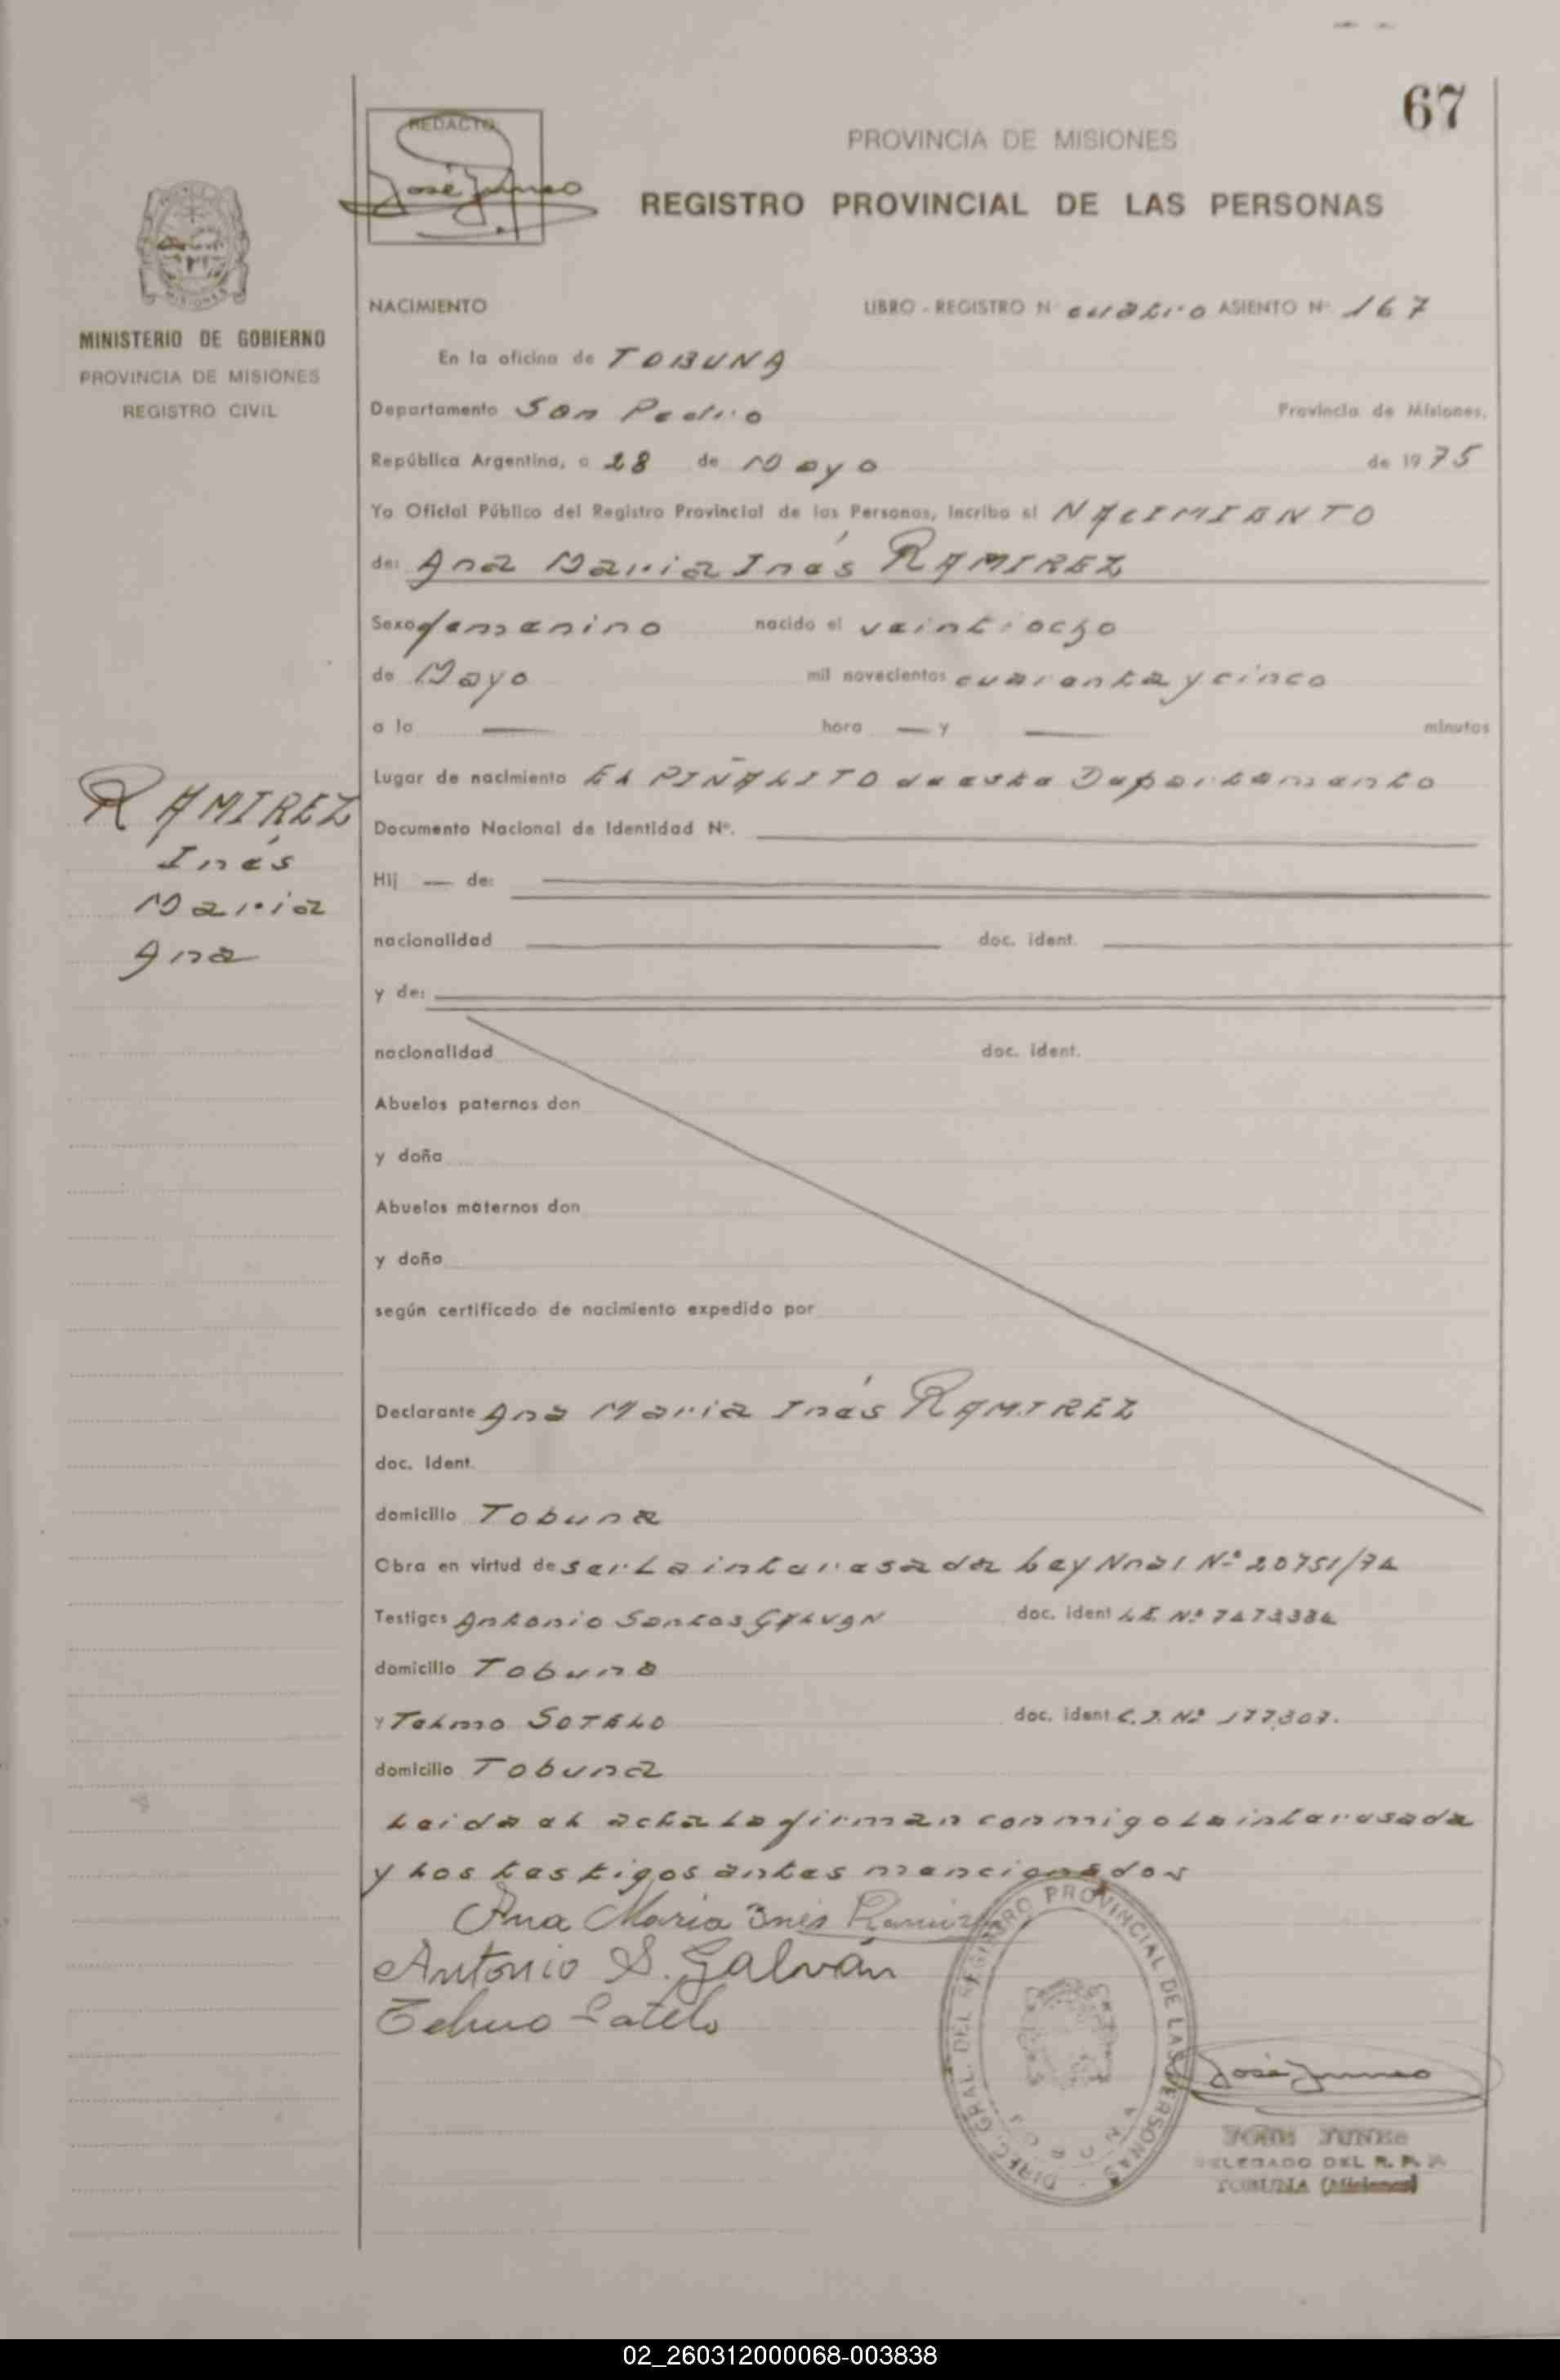 67
REDACTO
PROVINCIA DE MISIONES
REGISTRO PROVINCIAL DE LAS PERSONAS
MISIONES
MINISTERIO DE GOBIERNO
PROVINCIA DE MISIONES
REGISTRO CIVIL
NACIMIENTO LIBRO - REGISTRO Nº cuatro ASIENTO Nº 167
En la oficina de TOBUNA
Departamento San Pedro Provincia de Misiones,
República Argentina, a 28 de Mayo de 1975
Yo Oficial Público del Registro Provincial de las Personas, incribo el NACIMIENTO
de: Ana Maria Inés RAMIREZ
Sexo femenino nacido el veintiocho
de Mayo mil novecientos cuarenta y cinco
a la — hora — y — minutos
Lugar de nacimiento EL PIÑALITO de este Departamento
RAMIREZ
Inés
Maria
Ana
Documento Nacional de Identidad Nº.
Hij — de:
nacionalidad doc. ident.
y de:
nacionalidad doc. ident.
Abuelos paternos don
y doña
Abuelos maternos don
y doña
según certificado de nacimiento expedido por
Declarante Ana Maria Inés RAMIREZ
doc. Ident.
domicilio Tobuna
Obra en virtud de ser La interesada Ley Nnal Nº 20751/74
Testigos Antonio Santos GALVAN doc. ident L.E. Nº 7473384
domicilio Tobuna
y Telmo SOTELO doc. ident C.I. Nº 177.307.
domicilio Tobuna
Leida el acta La firman conmigo La interesada
y Los testigos antes mencionados
Ana Maria Inés Ramirez
Antonio S. Galván
Telmo Sotelo
DIREC. GRAL. DEL REGISTRO PROVINCIAL DE LAS PERSONAS
DELEGADO DEL R. P. P.
TOBUNA (Misiones)
02_260312000068-003838